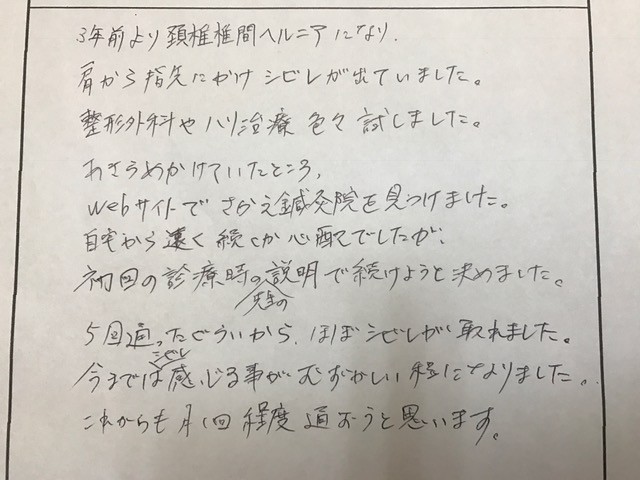 3年前より頚椎椎間ヘルニアになり、
肩から指先にかけシビレが出ていました。
整形外科やハリ治療色々試しました。
あきらめかけていたところ、
Webサイトでさかえ鍼灸院を見つけました。
自宅から遠く続くか心配でしたが、
初回の診療時の先生の説明で続けようと決めました。
5回通ったぐらいから、ほぼシビレが取れました。
今までは シビレ感じる事がむずかしい程になりました。
これからも月1回程度通おうと思います。